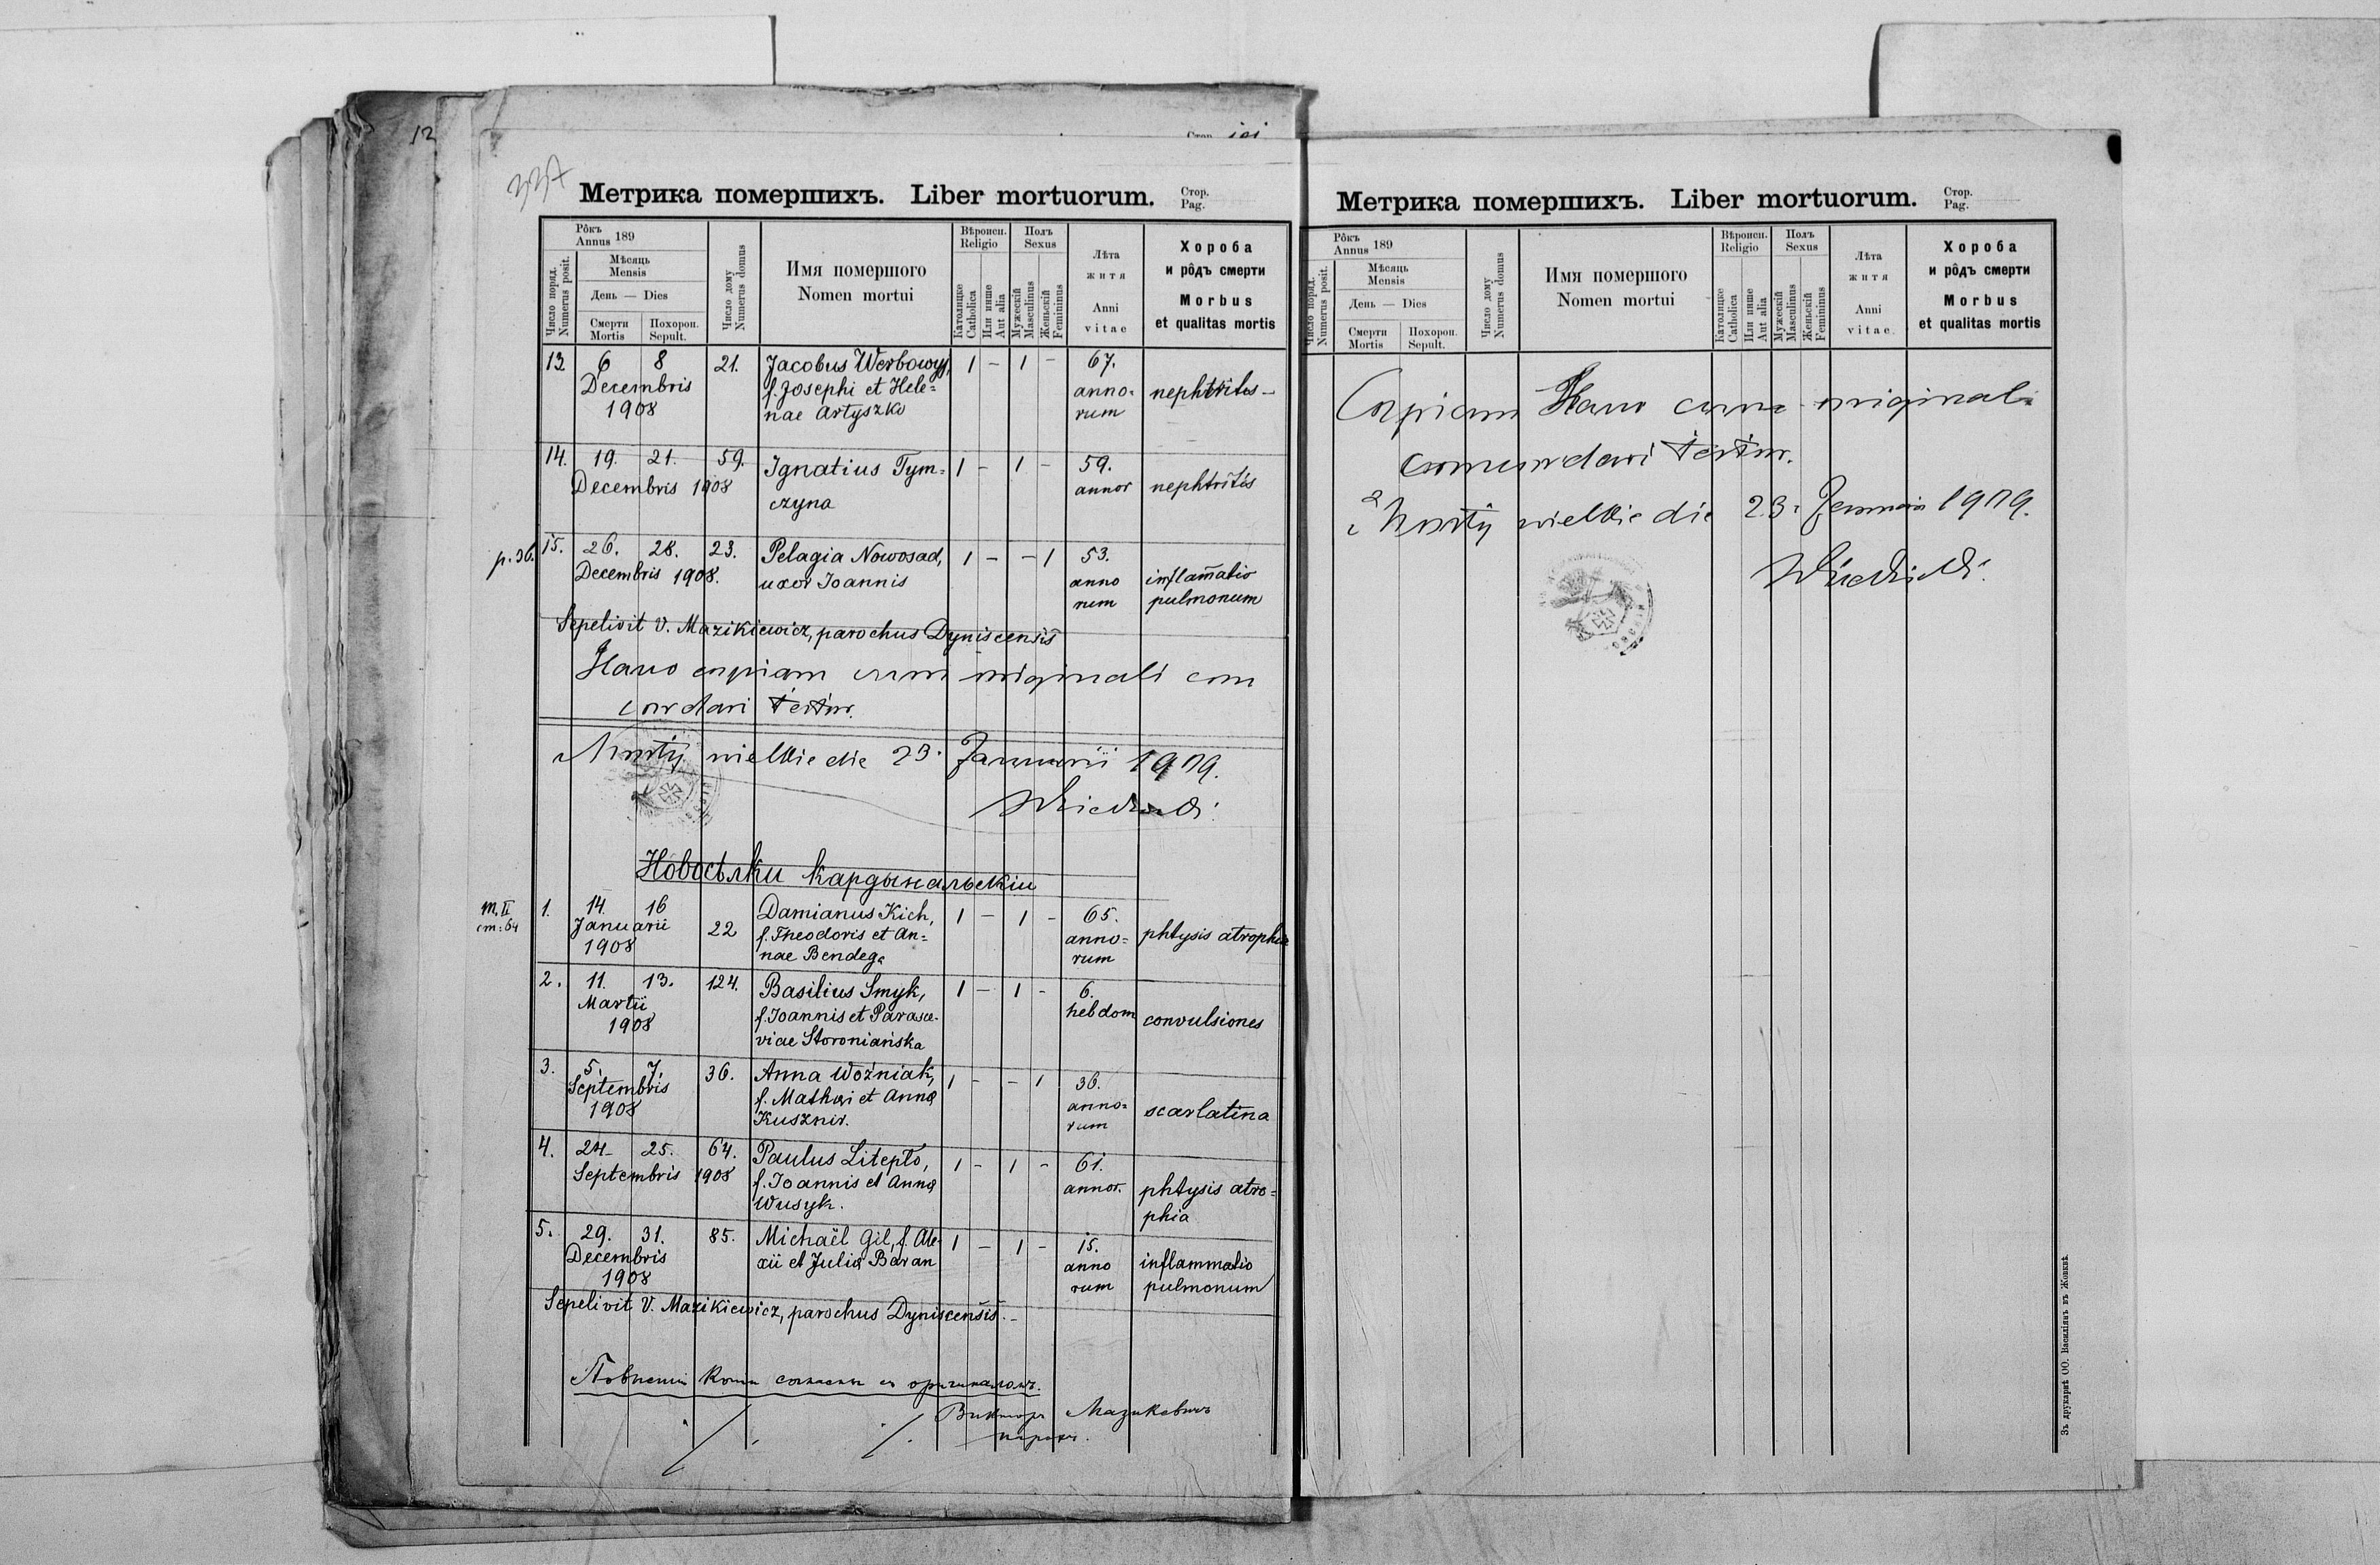 12
Стор. 101
337
Метрика помершихъ. Liber mortuorum. Стор. Pag.
Число поряд. Numerus posit.
Рôкъ Annus 189
Мѣсяць Mensis
День — Dies
Смерти Mortis
Похорон. Sepult.
Число дому Numerus domus
Имя помершого Nomen mortui
Вѣроисп. Religio
Католицке Catholica
Или инше Aut alia
Полъ Sexus
Мужескій Masculinus
Женьскій Femininus
Лѣта житя Anni vitae
Хороба и рôдъ смерти Morbus et qualitas mortis
13 6 8 21. Jacobus Werbowyj, 1 – 1 – 67.
Decembris f. Josephi et Hele= anno= nephtritis –
1908 nae Artyszko rum
14. 19. 21. 59. Ignatius Tym= 1 – 1 – 59.
Decembris 1908 czyna annor nephtritis
p. 36. 15. 26. 28. 23. Pelagia Nowosad, 1 – – 1 53.
Decembris 1908. uxor Joannis anno inflam̄atio
rum pulmonum
Sepelivit V. Mazikiewicz, parochus Dyniscensis
Hanc copiam cum originali con
cordari testor.
Mosty wielkie die 23. Januarii 1909.
Новосѣлки кардынальскіи
m. II 1. 14. 16 Damianus Kich, 1 – 1 – 65.
cm: 64 Januarii 22 f. Theodoris et An= anno= phtysis atrophia
1908 nae Bendega rum
2. 11. 13. 124. Basilius Smyk, 1 – 1 – 6.
Martii f. Joannis et Parasce- hebdom convulsiones
1908 viae Storoniańska
3. 5. 7. 36. Anna Woźniak, 1 – – 1 36.
Septembris f. Mathaei et Anna anno= scarlatina
1908 Kusznir. rum
4. 24 25. 64. Paulus Litepło, 1 – 1 – 61.
Septembris 1908 f. Joannis et Anna annor. phtysis atro=
Wusyk. phia
5. 29. 31. 85. Michaël Gil, f. Ale- 1 – 1 – 15.
Decembris xii et Julia Baran anno inflammatio
1908 rum pulmonum
Sepelivit V. Mazikiewicz, parochus Dyniscensis. –
копи согласны съ оригиналомъ.
Викторъ Мазикевичъ
парохъ.
Метрика помершихъ. Liber mortuorum. Стор. Pag.
Число поряд. Numerus posit.
Рôкъ Annus 189
Мѣсяць Mensis
День — Dies
Смерти Mortis
Похорон. Sepult.
Число дому Numerus domus
Имя помершого Nomen mortui
Вѣроисп. Religio
Католицке Catholica
Или инше Aut alia
Полъ Sexus
Мужескій Masculinus
Женьскій Femininus
Лѣта житя Anni vitae
Хороба и рôдъ смерти Morbus et qualitas mortis
Copiam Hanc cum originali
concordari testor.
Mosty wielkie die 23. Januarii 1909.
Зъ друкарнѣ ОО. Василіянъ въ Жовквѣ